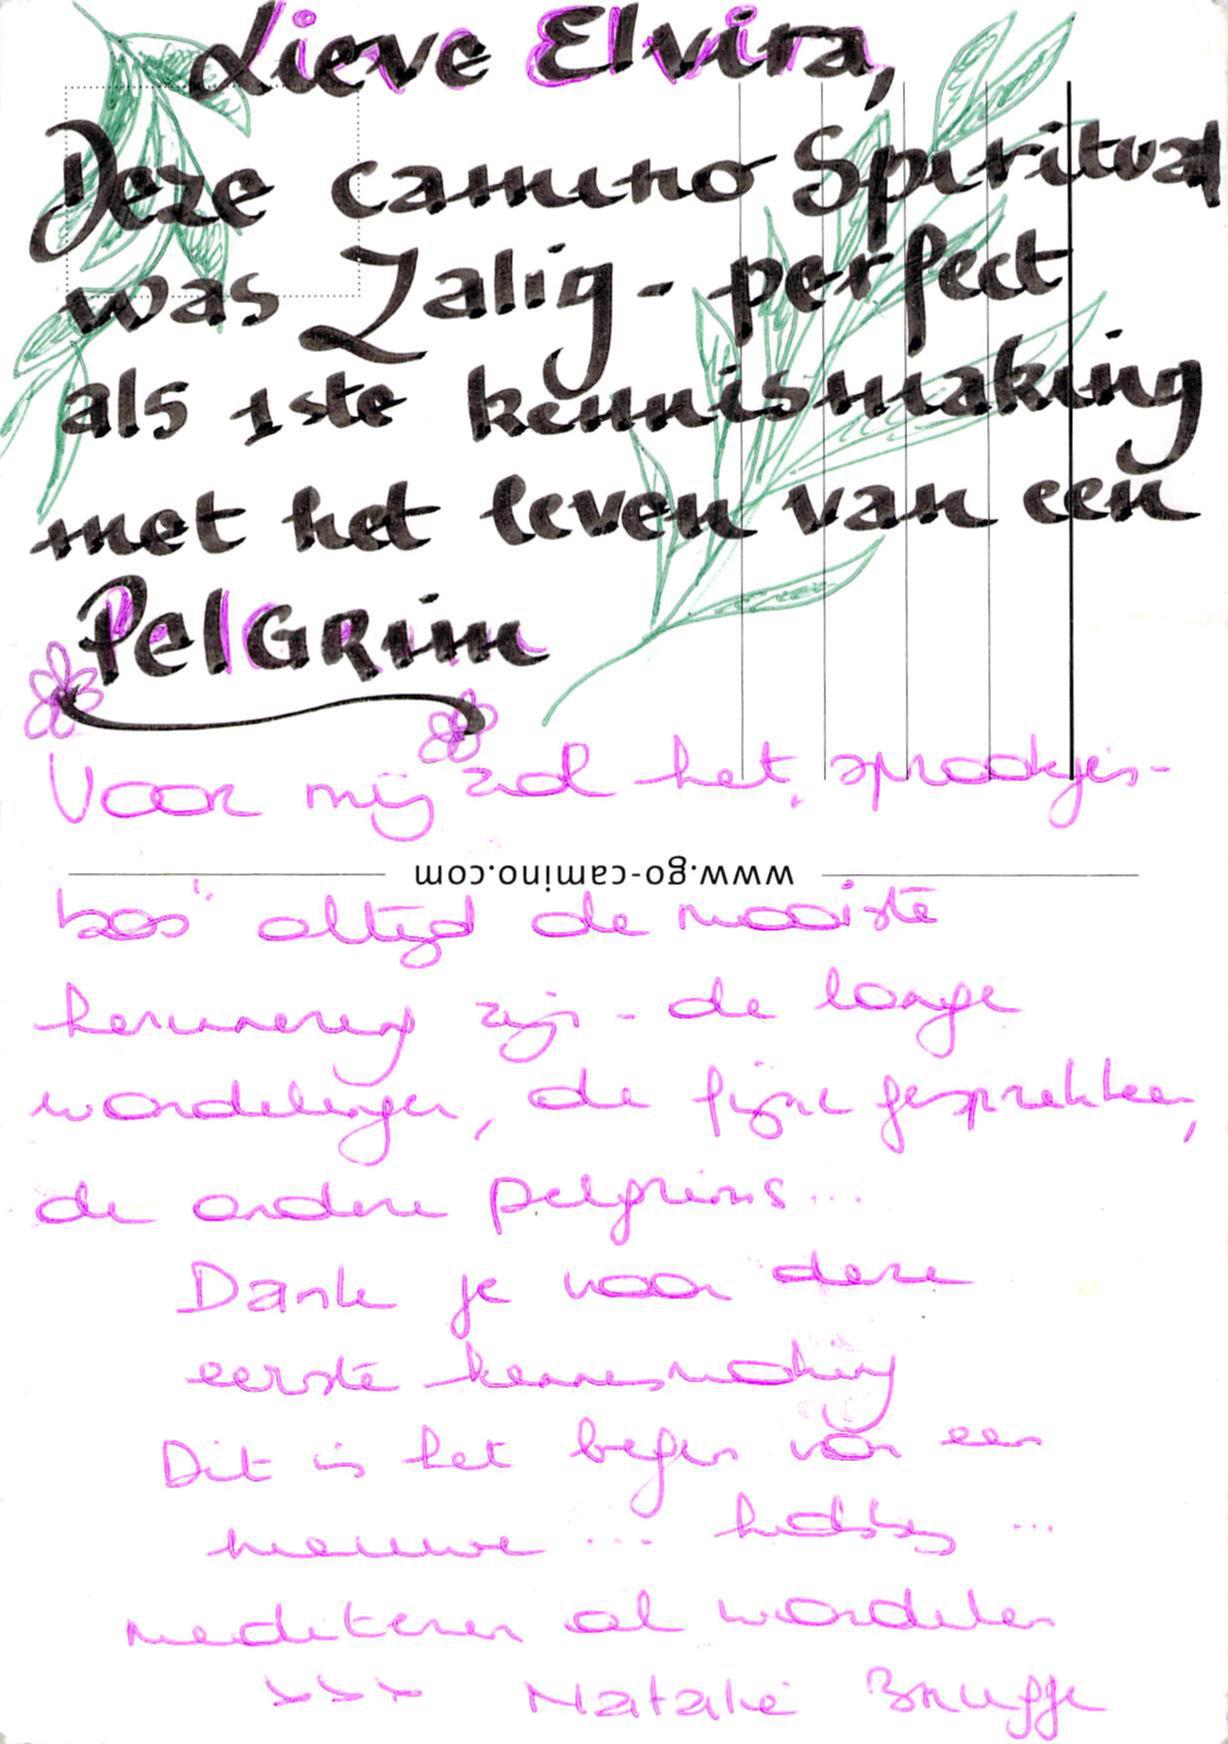 Lieve Elvira,
Deze camino Spiritual
was Zalig - perfect
als 1ste kennismaking
met het leven van een
PelGRim
Voor mij zal het, sprookjes-
www.go-camino.com
bos' altijd de mooiste
herinnering zijn - de lange
wandelingen, de fijne gesprekken,
de andere pelgrims...
Dank je voor deze
eerste kennismaking
Dit is het begin van een
nieuwe ... hobby ...
mediteren al wandelen
>>> Natalie Brugge